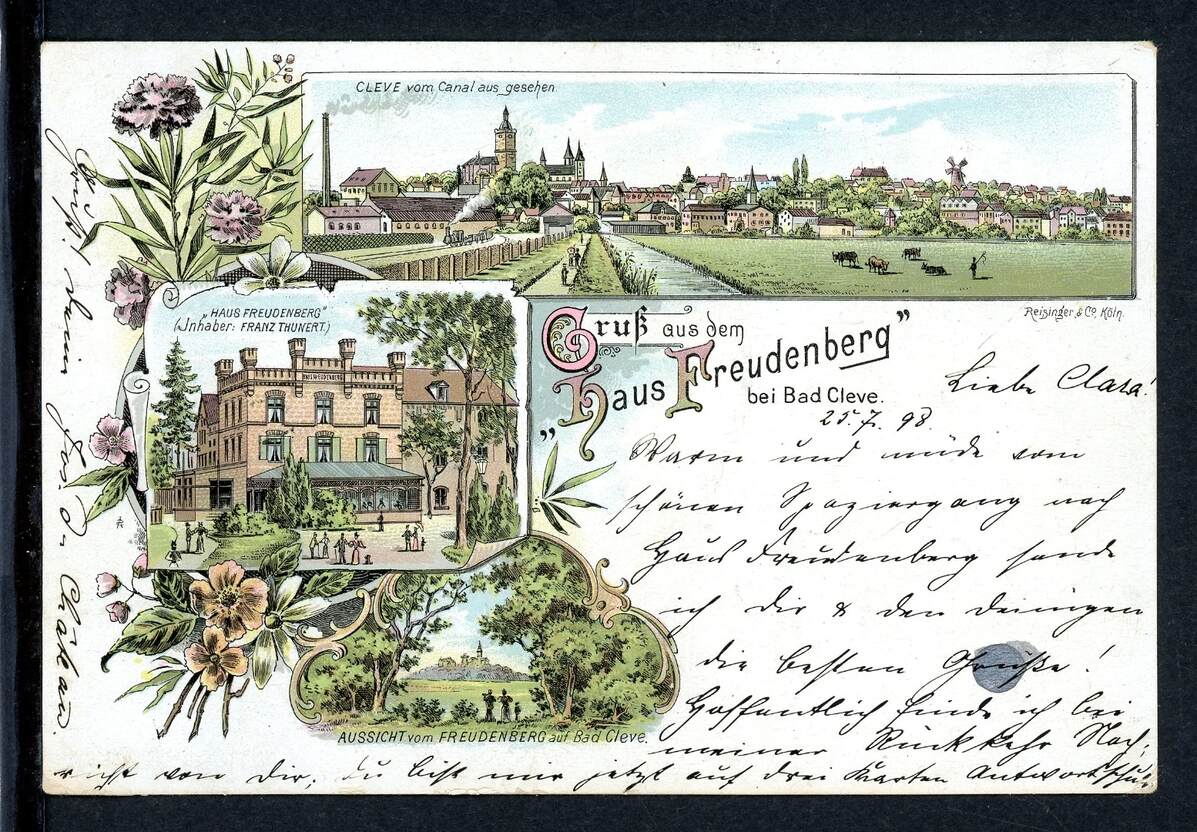 CLEVE vom Canal aus gesehen.
„HAUS FREUDENBERG”
(Inhaber: FRANZ THUNERT.)
HAUS FREUDENBERG
Reisinger & Co, Köln.
Gruß aus dem
„Haus Freudenberg”
bei Bad Cleve.
AUSSICHT vom FREUDENBERG auf Bad Cleve.
Liebe Clara!
25.7.98.
Warm und müde vom
schönen Spaziergang nach
Haus Freudenberg sende
ich dir & den deinigen
die besten Grüße!
Hoffentlich finde ich bei
meiner Rückkehr Nach-
richt von Dir; Du bist mir jetzt auf drei Karten Antwort schul-
dig. Gruß! dein